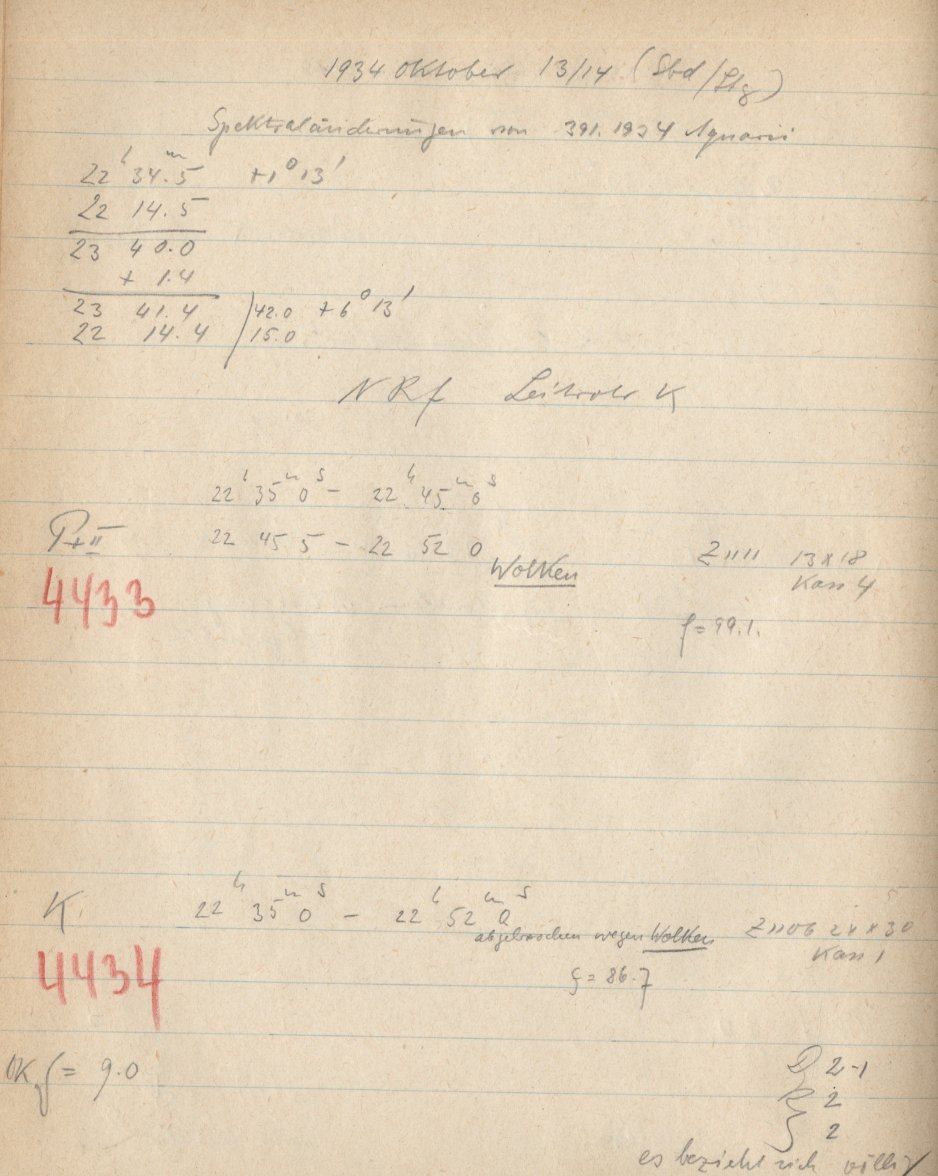 1934 Oktober 13/14 (Sbd/Stg)
Spektraländerungen von 391.1934 Aquarii
22ʰ 34.5ᵐ +1° 13'
22 14.5
23 40.0
+ 1.4
23 41.4 /42.0 +6° 13'
22 14.4 /15.0
NRf Leitrohr K
22ʰ 35ᵐ 0ˢ – 22ʰ 45ᵐ 0ˢ
22 45 5 – 22 52 0
Wolken
Z1111 13x18
Kass 4
4433
f = 99.1.
K 22ʰ 35ᵐ 0ˢ – 22ʰ 52ᵐ 0ˢ
abgebrochen wegen Wolken
Z1106 24x30
Kass 1
4434
f = 86.7
OK f = 9.0
2-1
2
2
es bezieht sich völlig